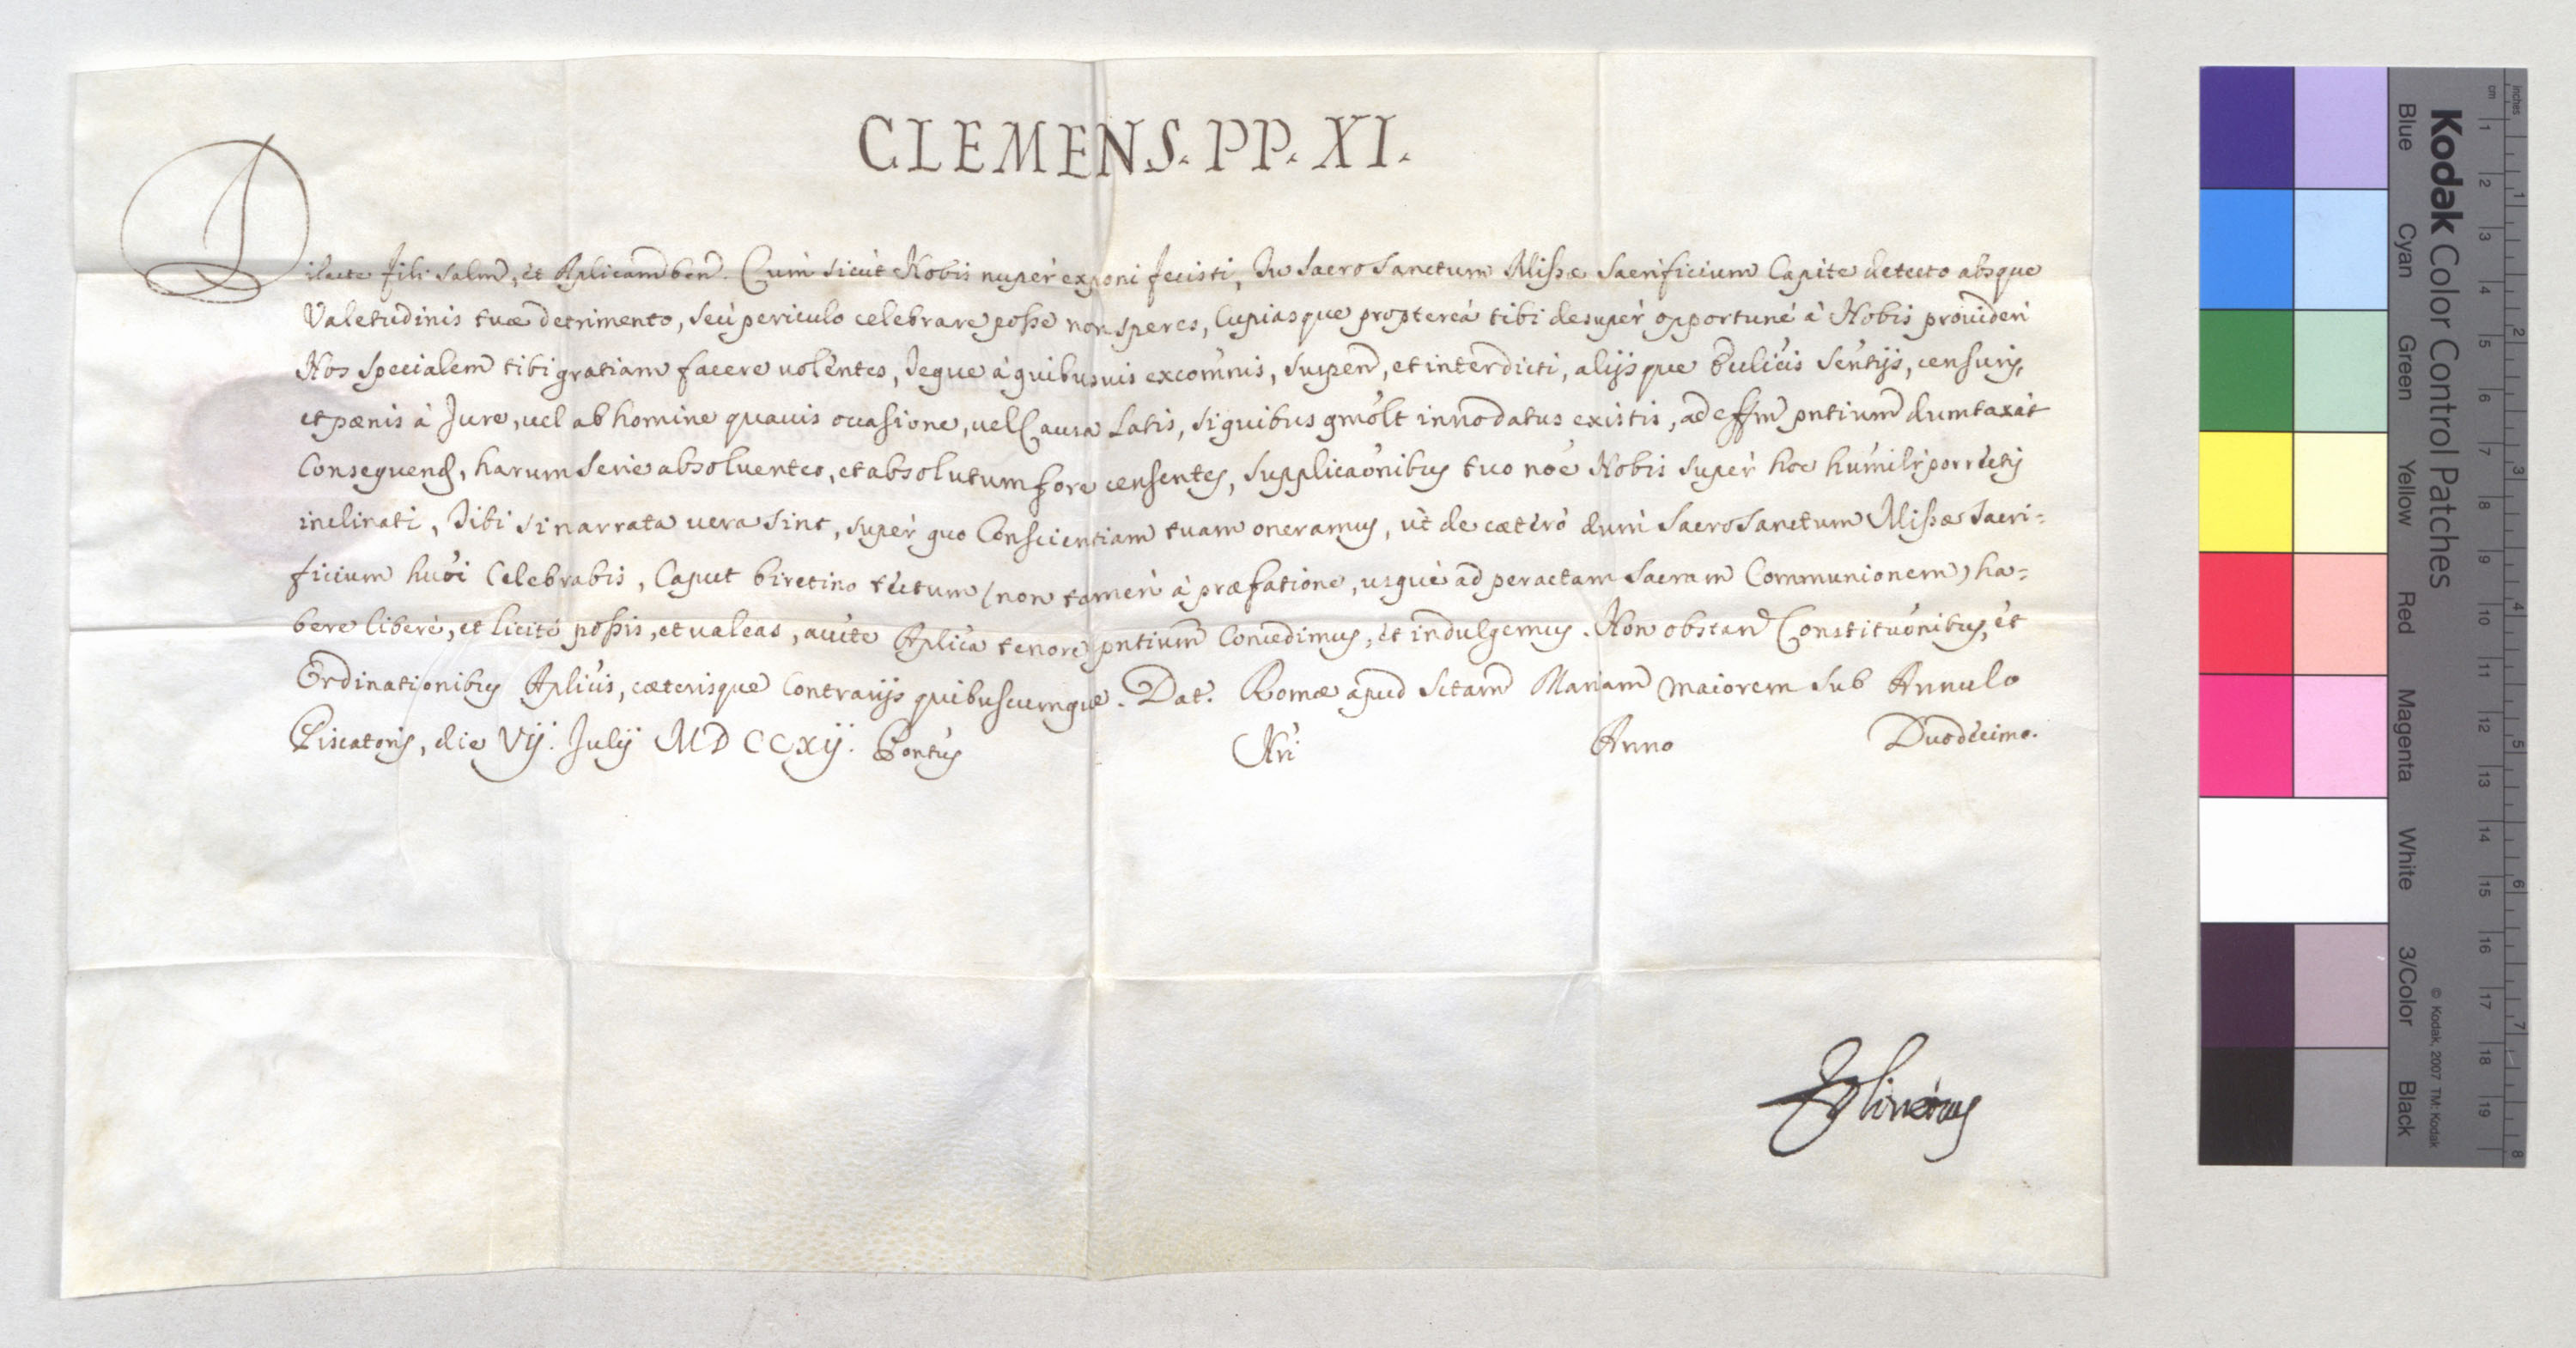 CLEMENS. PP. XI.
Dilecte Fili salm̃, et Aplicam̃ ben̄. Cum sicut Nobis nuper exponi fecisti, Tu Sacrosanctum Missæ Sacrificium Capite detecto absque
Valetudinis tuæ detrimento, seu periculo celebrare posse non speres, Cupiasque propterea tibi desuper opportunè à Nobis prouideri
Nos specialem tibi gratiam facere uolentes, Teque à quibusuis excom̃nis, suspen̄, et interdicti, alijsque Ecclicis Sentijs, censuris,
et pænis à Jure, uel ab homine quauis occasione, uel Causa Latis, si quibus gmõlt innodatus existis, ad effm̃ pntium̃ dumtaxàt
Consequend, harum Serie absoluentes, et absolutum fore censentes, Supplicaõnibus tuo noẽ Nobis super hoc humilr̃ porrectis
inclinati, Tibi si narrata uera sint, super quo Conscientiam tuam oneramus, ùt de cætero dum SacroSanctum Missæ Sacri=
ficium huõi Celebrabis, Caput biretino tectum (non tamen à præfatione, usque ad peractam Sacram Communionem) ha=
bere liberè, et licitè possis, et ualeas, aucte Aplica tenore pntium̃ Concedimus, et indulgemus. Non obstan̄ Constituõnibus, èt
Ordinationibus Aplicis, cæterisque Contrarijs quibuscumque. Dat. Romæ apud Sctam̃ Mariam Maiorem sub Annulo
Piscatoris, die Vij. Julij MDCCxij. Pontus Nri Anno Duodecimo.